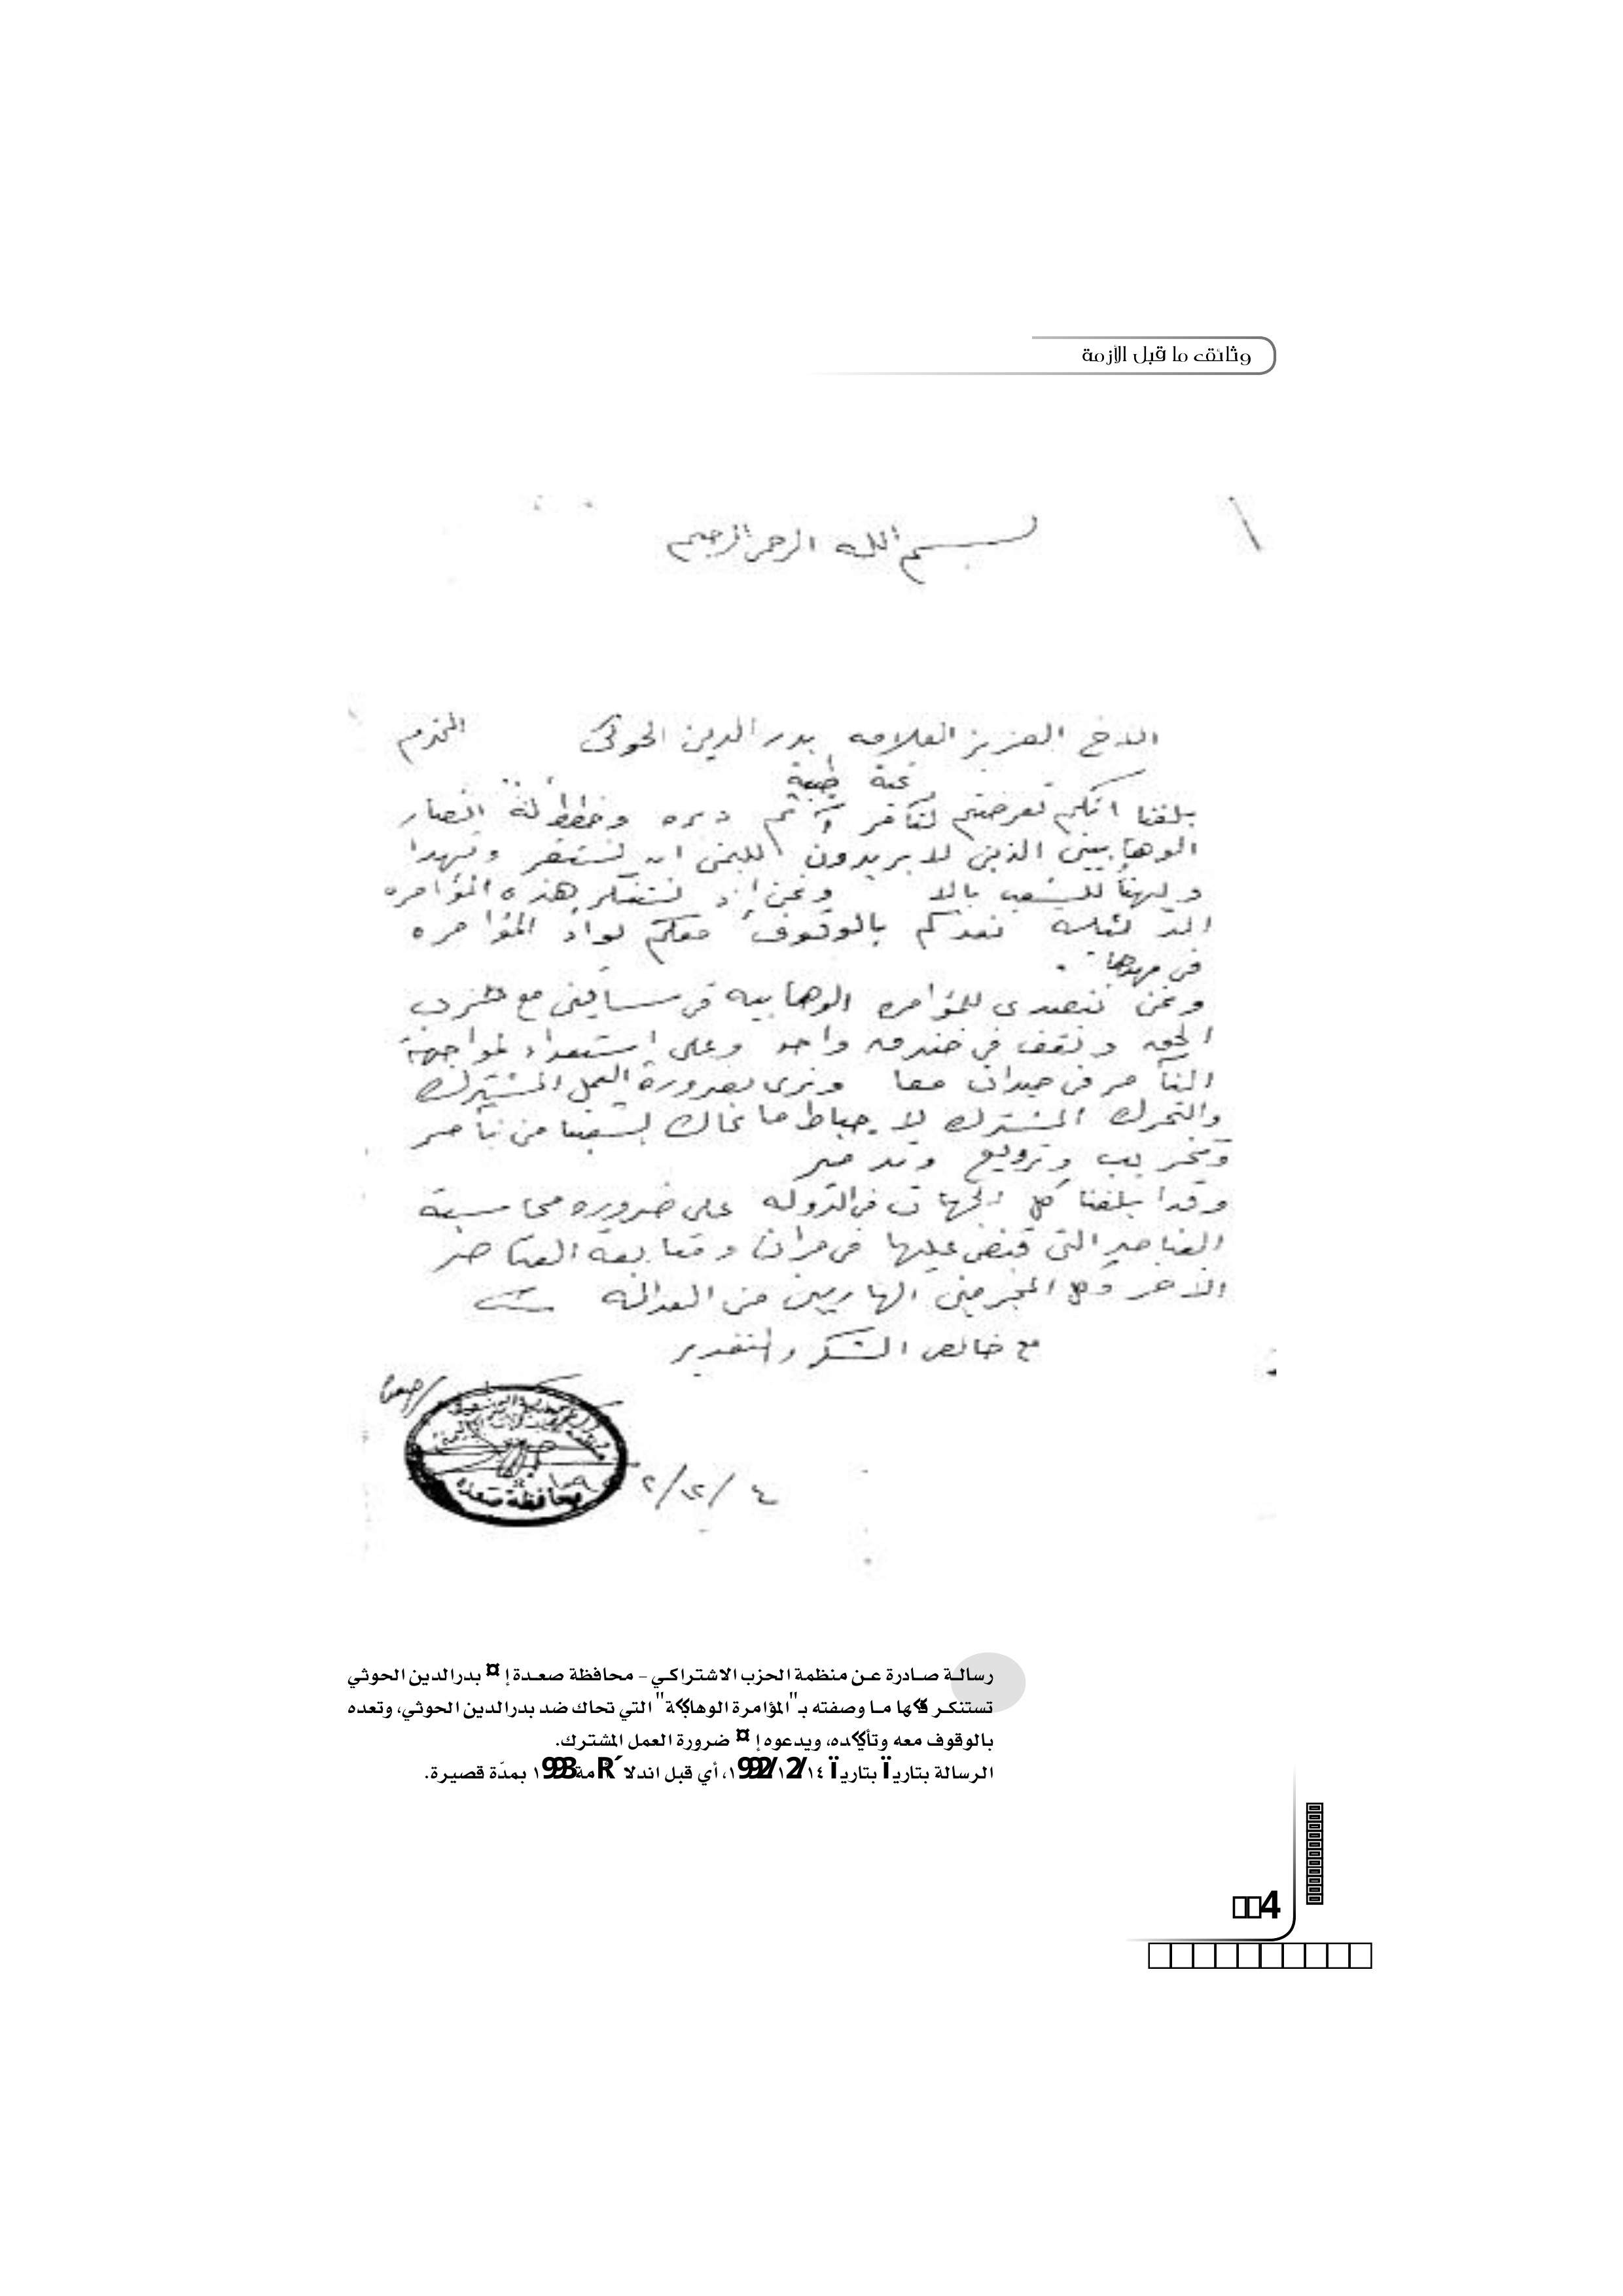 وثائق ما قبل الأزمة
بسم الله الرحمن الرحيم
الاخ العزيز العلامه بدر الدين الحوثي المحترم
تحية طيبة
بلغنا انكم تعرضتم لتآمر دبره وخطط له انصار
الوهابيين الذين لا يريدون لليمن ان تستقر وتهدا
ويهنأ للشعب بالا ونحن إذ نستنكر هذه المؤامره
نعدكم بالوقوف معكم لوأد المؤامره
في مهدها .
ونحن نتصدى للمؤامره الوهابيه في مع
الحق ونقف في خندق واحد وعلى إستعداد لمواجهة
التآمر في ميدان معا ونرى بضرورة العمل المشترك
والتحرك المشترك لإحباط ما يحاك لشعبنا من تآمر
وتخريب وترويع وتدمير
وقد ابلغنا كل الجهات في الدوله على ضروره محاسبة
العناصر التي قبض عليها في مران ومتابعة العناصر
الاخر وكل المجرمين الهاربين من العدالة
مع خالص الشكر والتقدير
محافظة صعده
رسالة صادرة عن منظمة الحزب الاشتراكي – محافظة صعدة إ¤ بدرالدين الحوثي
تستنكر ما وصفته بـ"المؤامرة" التي تحاك ضد بدرالدين الحوثي، وتعده
بالوقوف معه ويدعوه إ¤ ضرورة العمل المشترك.
الرسالة أي قبل بمدّة قصيرة.
4